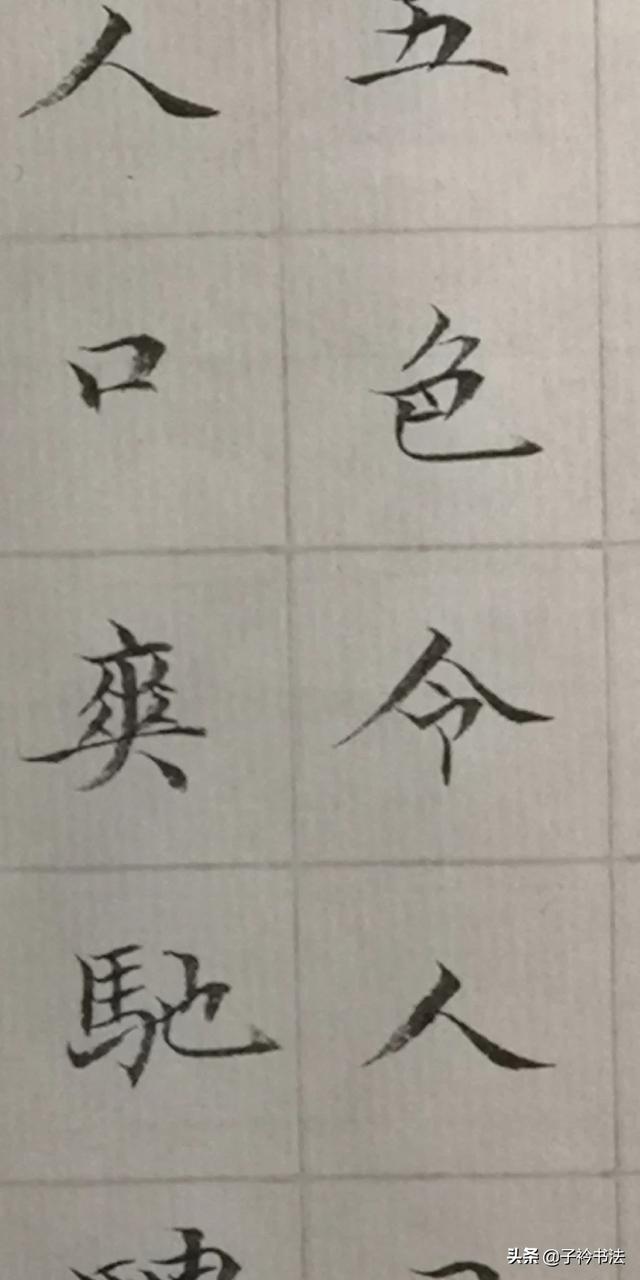 五色令人
人口爽馳
头条 @子衿书法